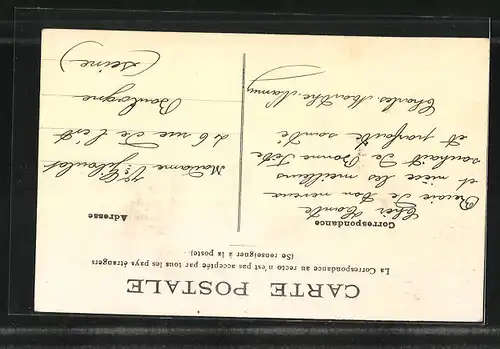 CARTE POSTALE
La Correspondance au recto n'est pas acceptée par tous les pays étrangers
(Se renseigner à la poste).
Correspondance
Cher Comte
Recois de ton neveux
et niece les meilleurs
souhait de Bonne Fete
et parfaite santé
Charles Marthe
Adresse
Madame Vve
46 rue de l'est
Boulogne
(Seine)